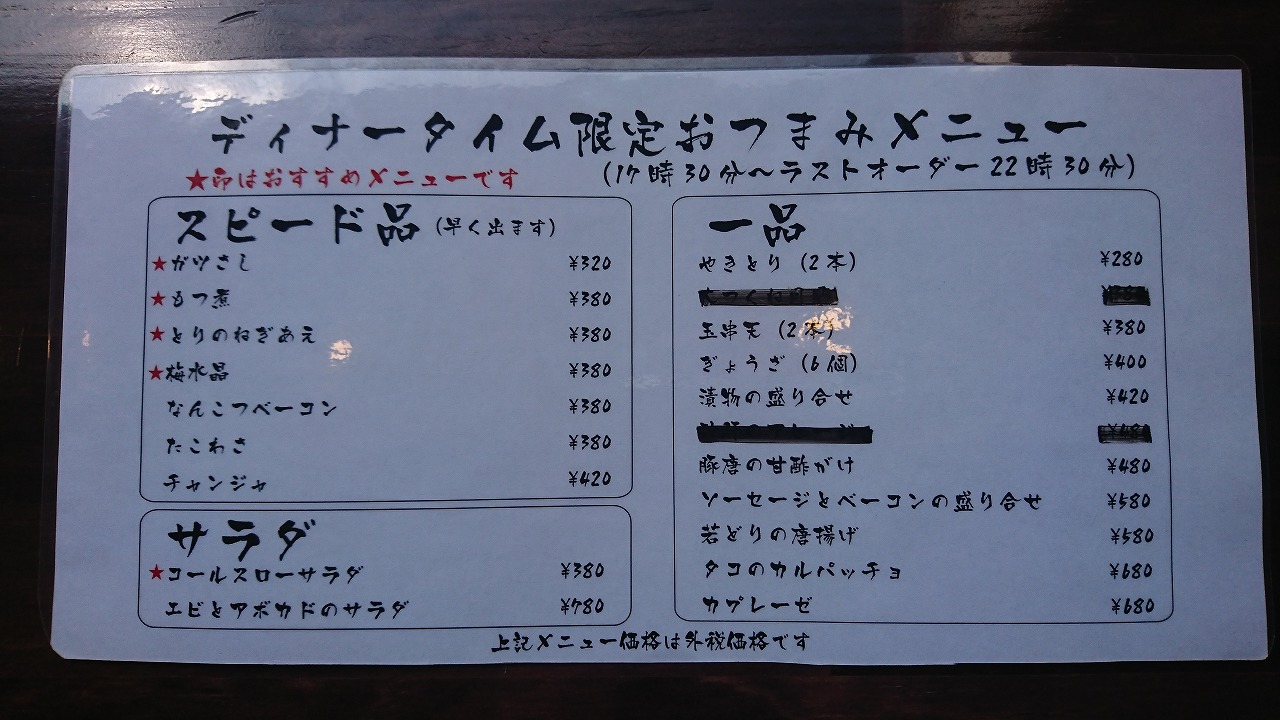 ディナータイム限定おつまみメニュー
★印はおすすめメニューです
(17時30分～ラストオーダー22時30分)
スピード品 (早く出ます)
★ガツさし ¥320
★もつ煮 ¥380
★とりのねぎあえ ¥380
★梅水晶 ¥380
なんこつベーコン ¥380
たこわさ ¥380
チャンジャ ¥420
サラダ
★コールスローサラダ ¥380
エビとアボカドのサラダ ¥780
一品
やきとり (2本) ¥280
玉串天 (2本) ¥380
ぎょうざ (6個) ¥400
漬物の盛り合せ ¥420
豚唐の甘酢がけ ¥480
ソーセージとベーコンの盛り合せ ¥580
若どりの唐揚げ ¥580
タコのカルパッチョ ¥680
カプレーゼ ¥680
上記メニュー価格は外税価格です